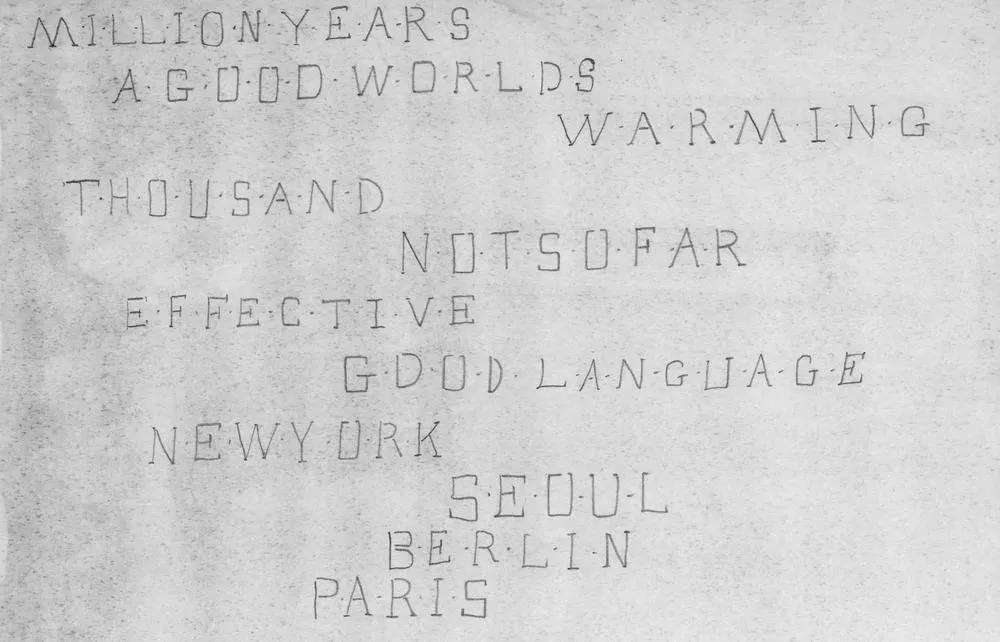 M·I·L·L·I·O·N·Y·E·A·R·S
A·G·O·O·D·W·O·R·L·D·S
W·A·R·M·I·N·G
T·H·O·U·S·A·N·D
N·O·T·S·O·F·A·R
E·F·F·E·C·T·I·V·E
G·O·O·D·L·A·N·G·U·A·G·E
N·E·W·Y·O·R·K
S·E·O·U·L
B·E·R·L·I·N
P·A·R·I·S